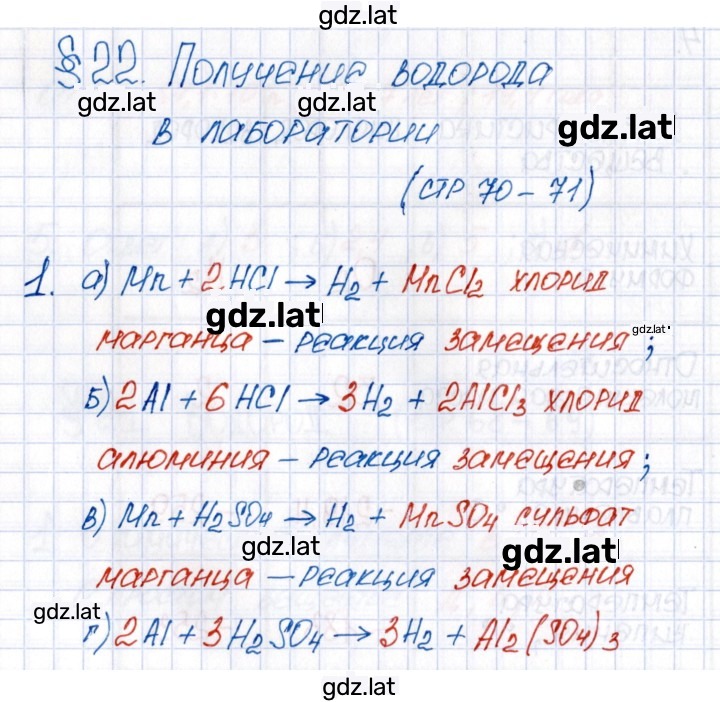 gdz.lat
§ 22. Получение водорода
gdz.lat gdz.lat
в лаборатории gdz.lat
(стр 70 – 71)
1. а) Mn + 2 HCl → H₂ + MnCl₂ хлорид
gdz.lat
марганца – реакция замещения ; gdz.lat
Б) 2Al + 6 HCl → 3H₂ + 2AlCl₃ хлорид
алюминия – реакция замещения ;
в) Mn + H₂SO₄ → H₂ + MnSO₄ сульфат
gdz.lat gdz.lat
марганца – реакция замещения
gdz.lat
г) 2Al + 3H₂SO₄ → 3H₂ + Al₂(SO₄)₃
gdz.lat